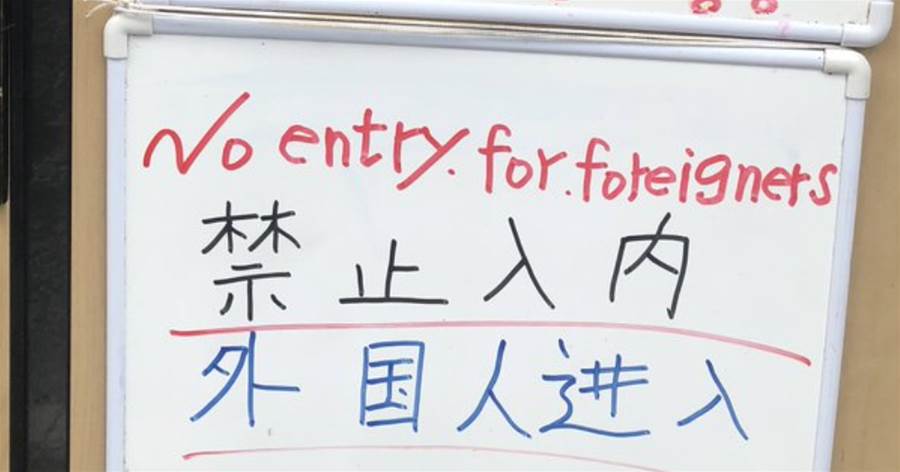 No entry. for. foreigners
禁止入内
外国人进入